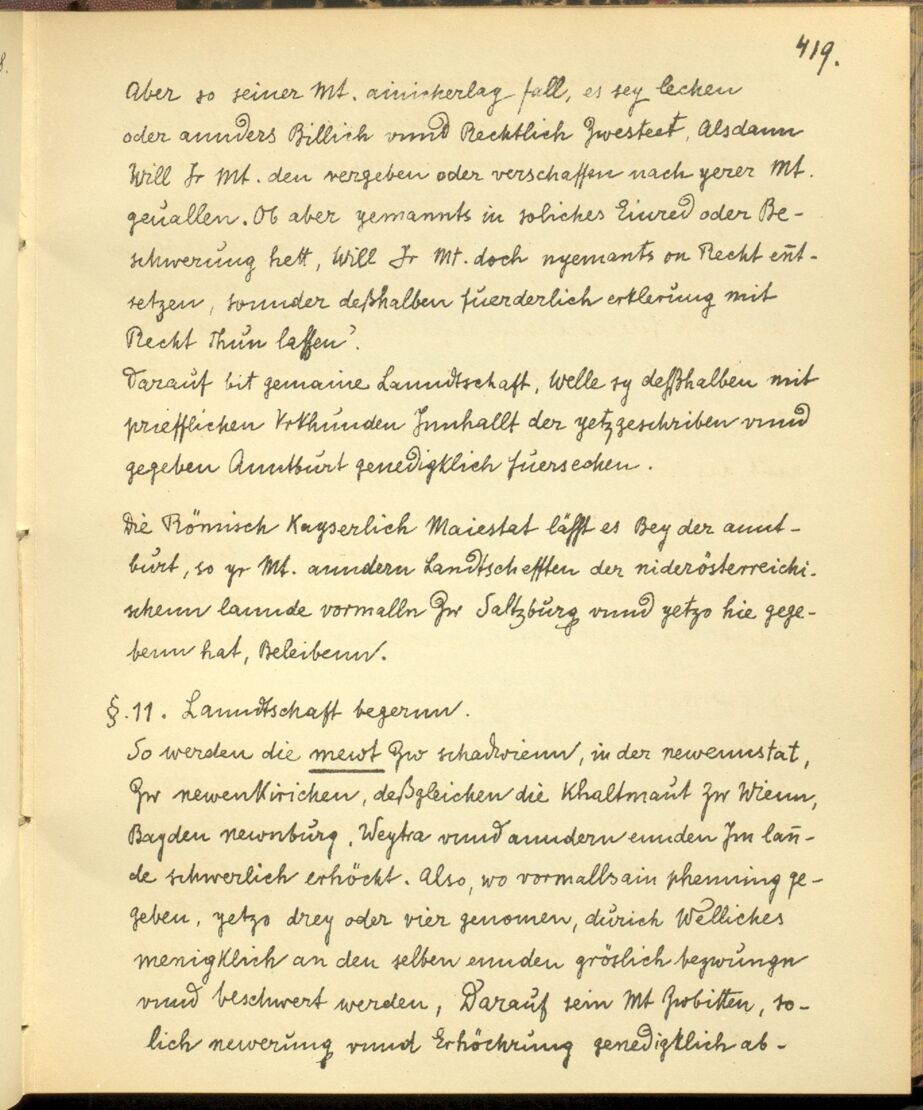 419.
Aber so seiner Mt. ainicherlay fall, es sey lechen
oder annders Billich vnnd Rechtlich Zwesteet, Alsdann
Will Jr Mt. den vergeben oder verschaffen nach yerer Mt.
geuallen. Ob aber yemannts in soliches Einred oder Be-
schwerung hett, Will Jr Mt. doch nyemants on Recht ent-
setzen, sonnder deßhalben fuerderlich erklerung mit
Recht Thun lassen.
Darauf bit gemaine Lanndtschaft, Welle sy deßhalben mit
priefflichen Vrkhunden Innhallt der yetzgeschriben vnnd
gegeben Anntburt genedigklich fuersechen.
Die Römisch Kayserlich Maiestat läfft es Bey der annt-
burt, so yr Mt. anndern Landtschefften der niderösterreichi-
schenn lannde vormalln Zw Saltzburg vnnd yetzo hie gege-
benn hat, Beleibenn.
§. 11. Lanndtschaft begernn.
So werden die mewt Zw schadwienn, in der newennstat,
Zw newenkirichen, deßgleichen die Khaltmaut Zw Wienn,
Bayden newnburg, Weytra vnnd anndern ennden Im lan̄-
de schwerlich erhöckt. Also, wo vormalls ain phenning ge-
geben, yetzo drey oder vier genomen, durich Welliches
menigklich an den selben ennden gröslich bezwungn
vnnd beschwert werden, Darauf sein Mt Zwbitten, so-
lich newerung vnnd Erhöchrung genedigklich ab-